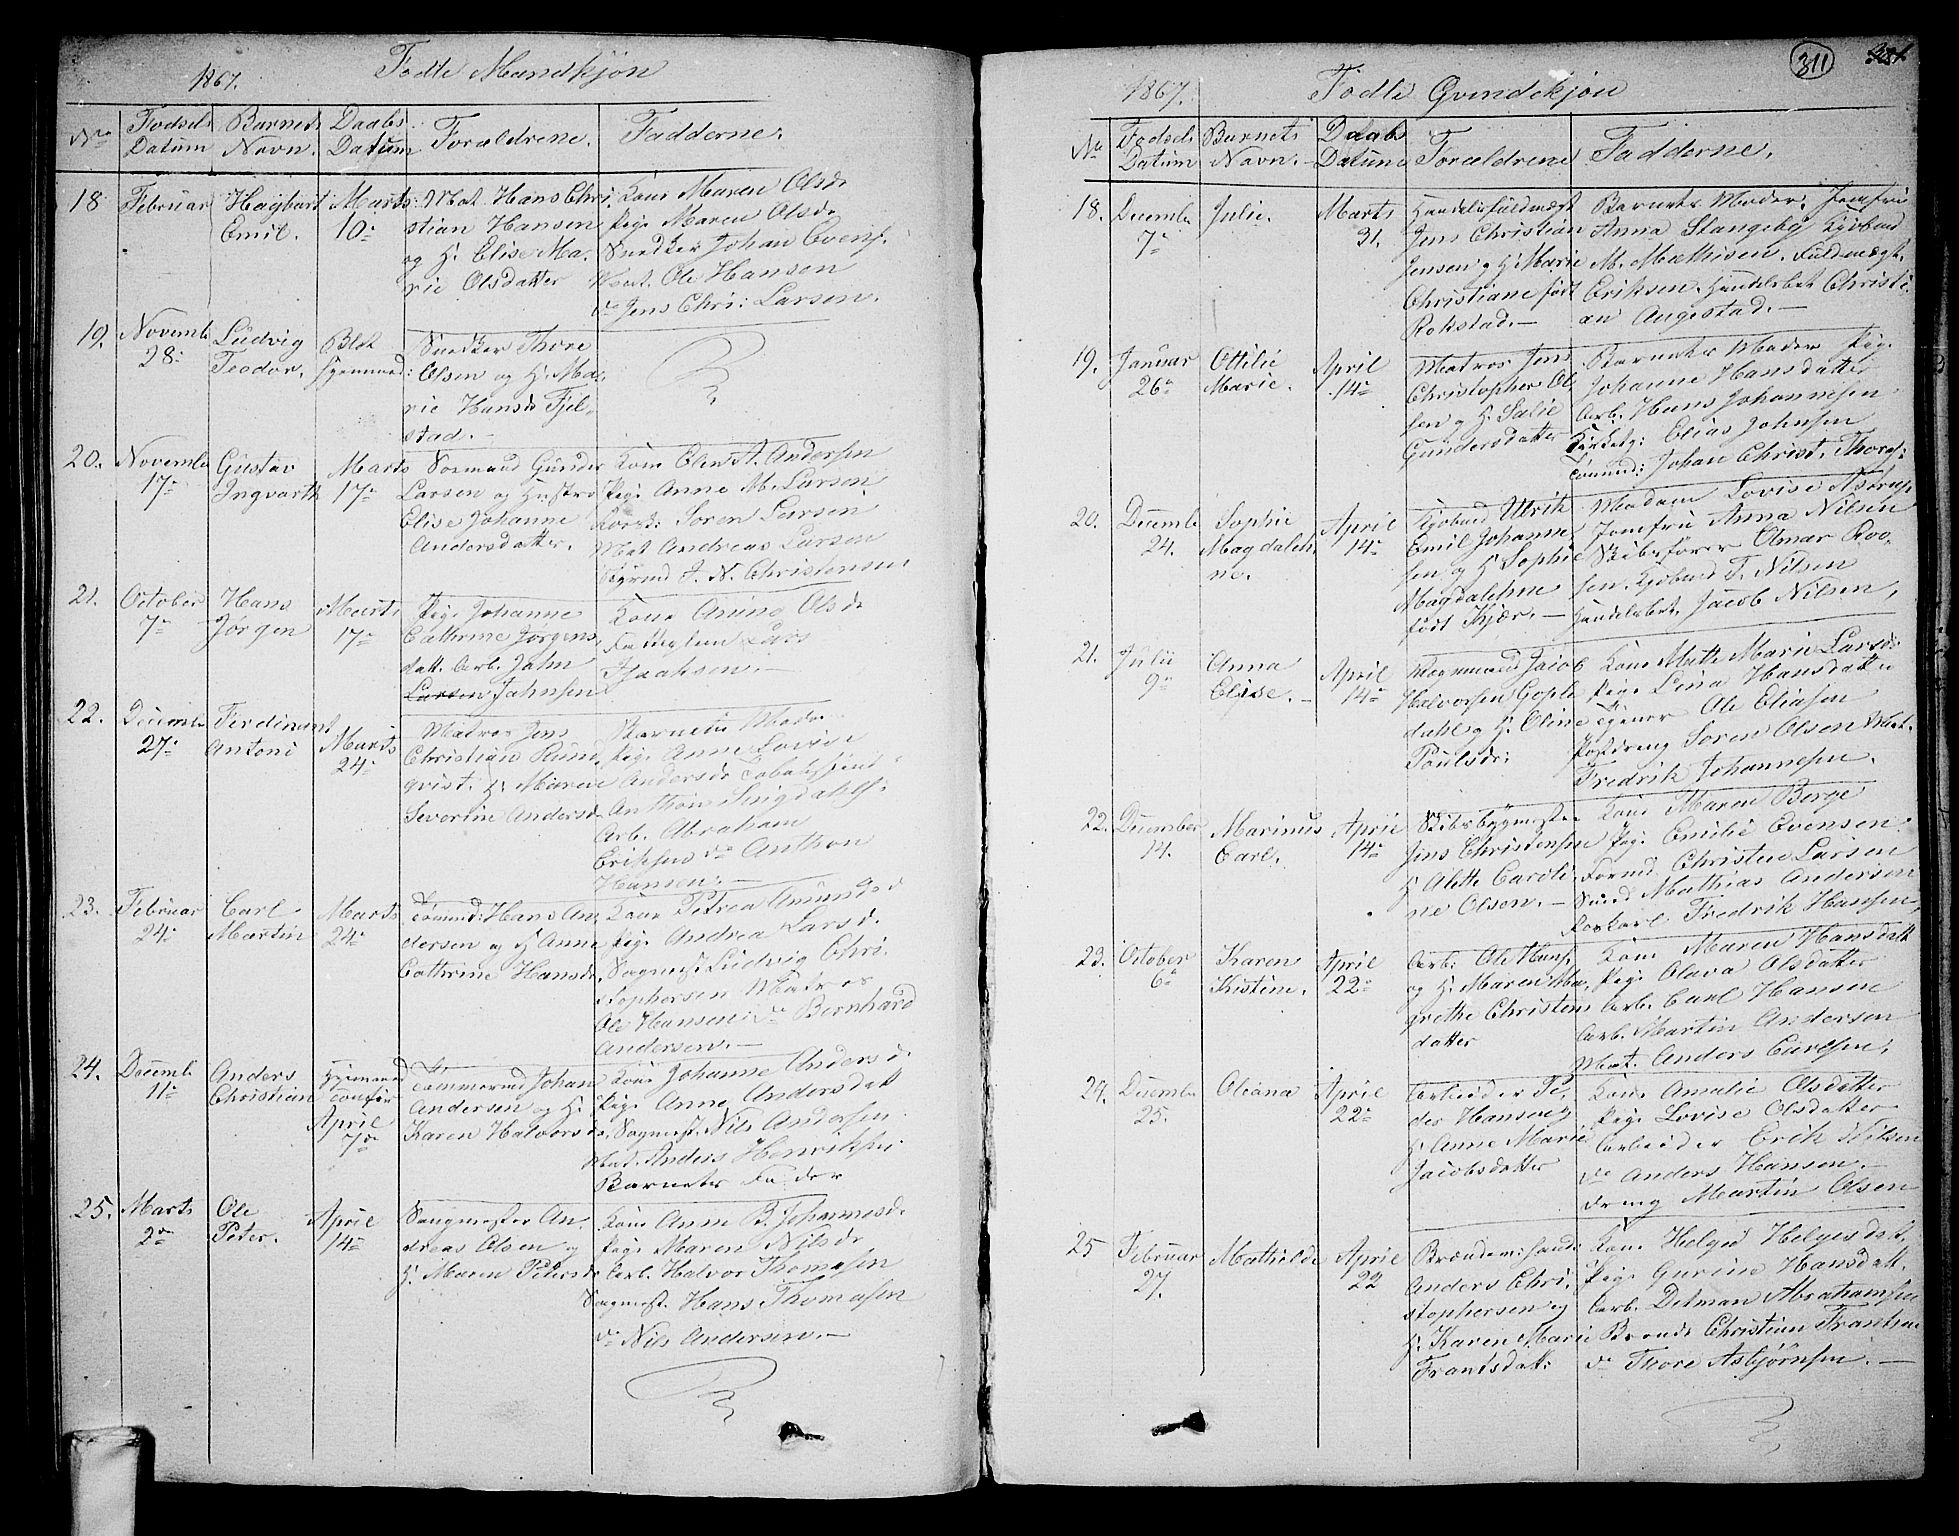 1867.
Fødte Mandkjøn
No
Fødsels Datum
Barnets Navn.
Daabs Datum
Forældrene.
Fadderne.
18
Februar
Hagbart Emil.
Marts 10de
Mat. Hans Chri,
stian Hansen
og H. Elise Ma,
rie Olsdatter
Kone Maren Olsdr
Pige Maren Olsdr
Snedker Johan Evens.
Mat. Ole Hansen
do Jens Chri: Larsen.
19.
Novemb 28:
Ludvig Teodor.
Blot
Snedker Thore
Olsen og H. Ma,
rie Hansdr Fjel,
stad.
20.
Novemb 17de
Gustav Ingvarth
Marts 17de
Sømand Gunder
Larsen og Hustro
Elise Johanne
Andersdatter.
Kone Oline A. Andersen
Pige Anne M. Larsen
Lods: Søren Larsen
Mat Andreas Larsen
J. N. Christensen.
21.
October 7de
Hans Jørgen
Marts 17de
Pige Johanne
Cathrine Jørgens,
datt. Arb. John
Larsen Johnsen
Kone Anine Olsdr
Fattiglem Lars
Isaksen.
22.
Decemb 27de
Ferdinant Antoni
Marts 24de
Matros Jens
Christian Rund,
qvist. H. Maren
Severine Andersd.
Barnets Moder
Pige Anne Lovise
Andersdr
Anthon
Arb. Abraham
Eriksen do Anthon
Hansen.
23.
Februar 24de
Carl Martin
Marts 24de
Tømmd: Hans An,
dersen og H. Anne
Cathrine Hansdr
Kone Petrea Amundsd
Pige Andrea Larsd.
Sagmest. Ludvig Chri,
stophersen Matros
Ole Hansen: do Bernhard
Andersen.
24.
Decemb 11te
Anders Christian
Hjemmed
April 7de
Tømmermd Johan
Andersen og H.
Karen Halvorsdr
Kone Johanne Andersd.
Pige Anne Andersdatt
Sagmest. Nils Andersen
Mat. Anders Henriksen
Barnets Fader
25.
Marts 2den
Ole Peter.
April 14de
Saugmester An,
dreas Olsen og
H. Maren Petersdr
Kone Anne B. Johannesd.
Pige Maren Nilsdr
Arb. Halvor Thomesen
Sagmest. Hans Thomesen
do Nils Andersen.
311
1867.
Fødte Qvindekjøn
No
Fødsels Datum
Barnets Navn.
Daabs Datum
Forældrene
Fadderne.
18.
Decemb 7de
Julie.
Marts 31.
Handelsfuldmægt
Jens Christian
Jensen og H. Marie
Christiane født
Rokstad.
Barnets Moder: Jomfru
Anna Stangeby Kjøbmd
M. Mathisen. Fuldmægt.
Eriksen. Handelsbet Christi,
an Augestad.
19.
Januar 26de
Ottilie Marie.
April 14de
Matros Jens
Christopher Ol
sen og H. Julie
Gundersdatter
Barnets Moder Pige
Johanne Hansdatter
Arb. Hans Johannesen
Kirketj: Elias Johnsen
Tømmd: Johan Christ. Thores:
20.
Decemb 24.
Sophie Magdalene.
April 14de
Kjøbmd Ulrik
Emil Johanne,
sen og H. Sophie
Magdalene
født Kjær.
Madam Lovise Astrup,
Jomfru Anna Nilsen
Skibsfører Olmar Roo,
sen. Kjøbmd T. Nilsen
Handelsbet. Jacob Nilsen,
21.
Julii 9de
Anna Elise.
April 14de
Jacob
Halvorsen Gople
dahl og H. Oline
Poulsdr:
Kone Mette Marie Larsdr
Pige Lina Hansdatter
Ole Eliasen
Søren Olsen Mat.
Fredrik Johannesen.
22.
December 14.
Marinus Carl.
April 14de
Skibsbygmester
Jens Christensen
H. Alette Caroli,
ne Olsen.
Kone Maren Berge
Pige Emilie Evensen
Formd Christen Larsen
Smed Mathias Andersen
Fredrik Hansen,
23.
October 6te
Karen Kistine.
April 22de
Arb. Ole Hans,
og H. Maren Ma,
grethe Christens
datter
Kone Maren Hansdatt
Pige Olava Olsdatter
Arb. Carl Hansen
Arb. Martin Andersen
Mat. Anders Carlsen.
24.
Decemb 25.
Oleana
April 22de
Arbeider Pe,
der Hansen og
H. Anne Marie
Jacobsdatter
Kone Amalie Olsdatter
Pige Lovise Olsdatter
Arbeider Erik Nilsen
do Anders Hansen.
dreng Martin Olsen
25
Februar 27.
Mathilde
April 22
Anders Chri,
stophersen og
H. Karen Marie
Frantsdatt:
Kone Helged Helgesdat.
Pige Gurine Hansdatt.
Arb. Detman Abrahamsen
Christian Frantsen
do Thore Asbjørnsen.